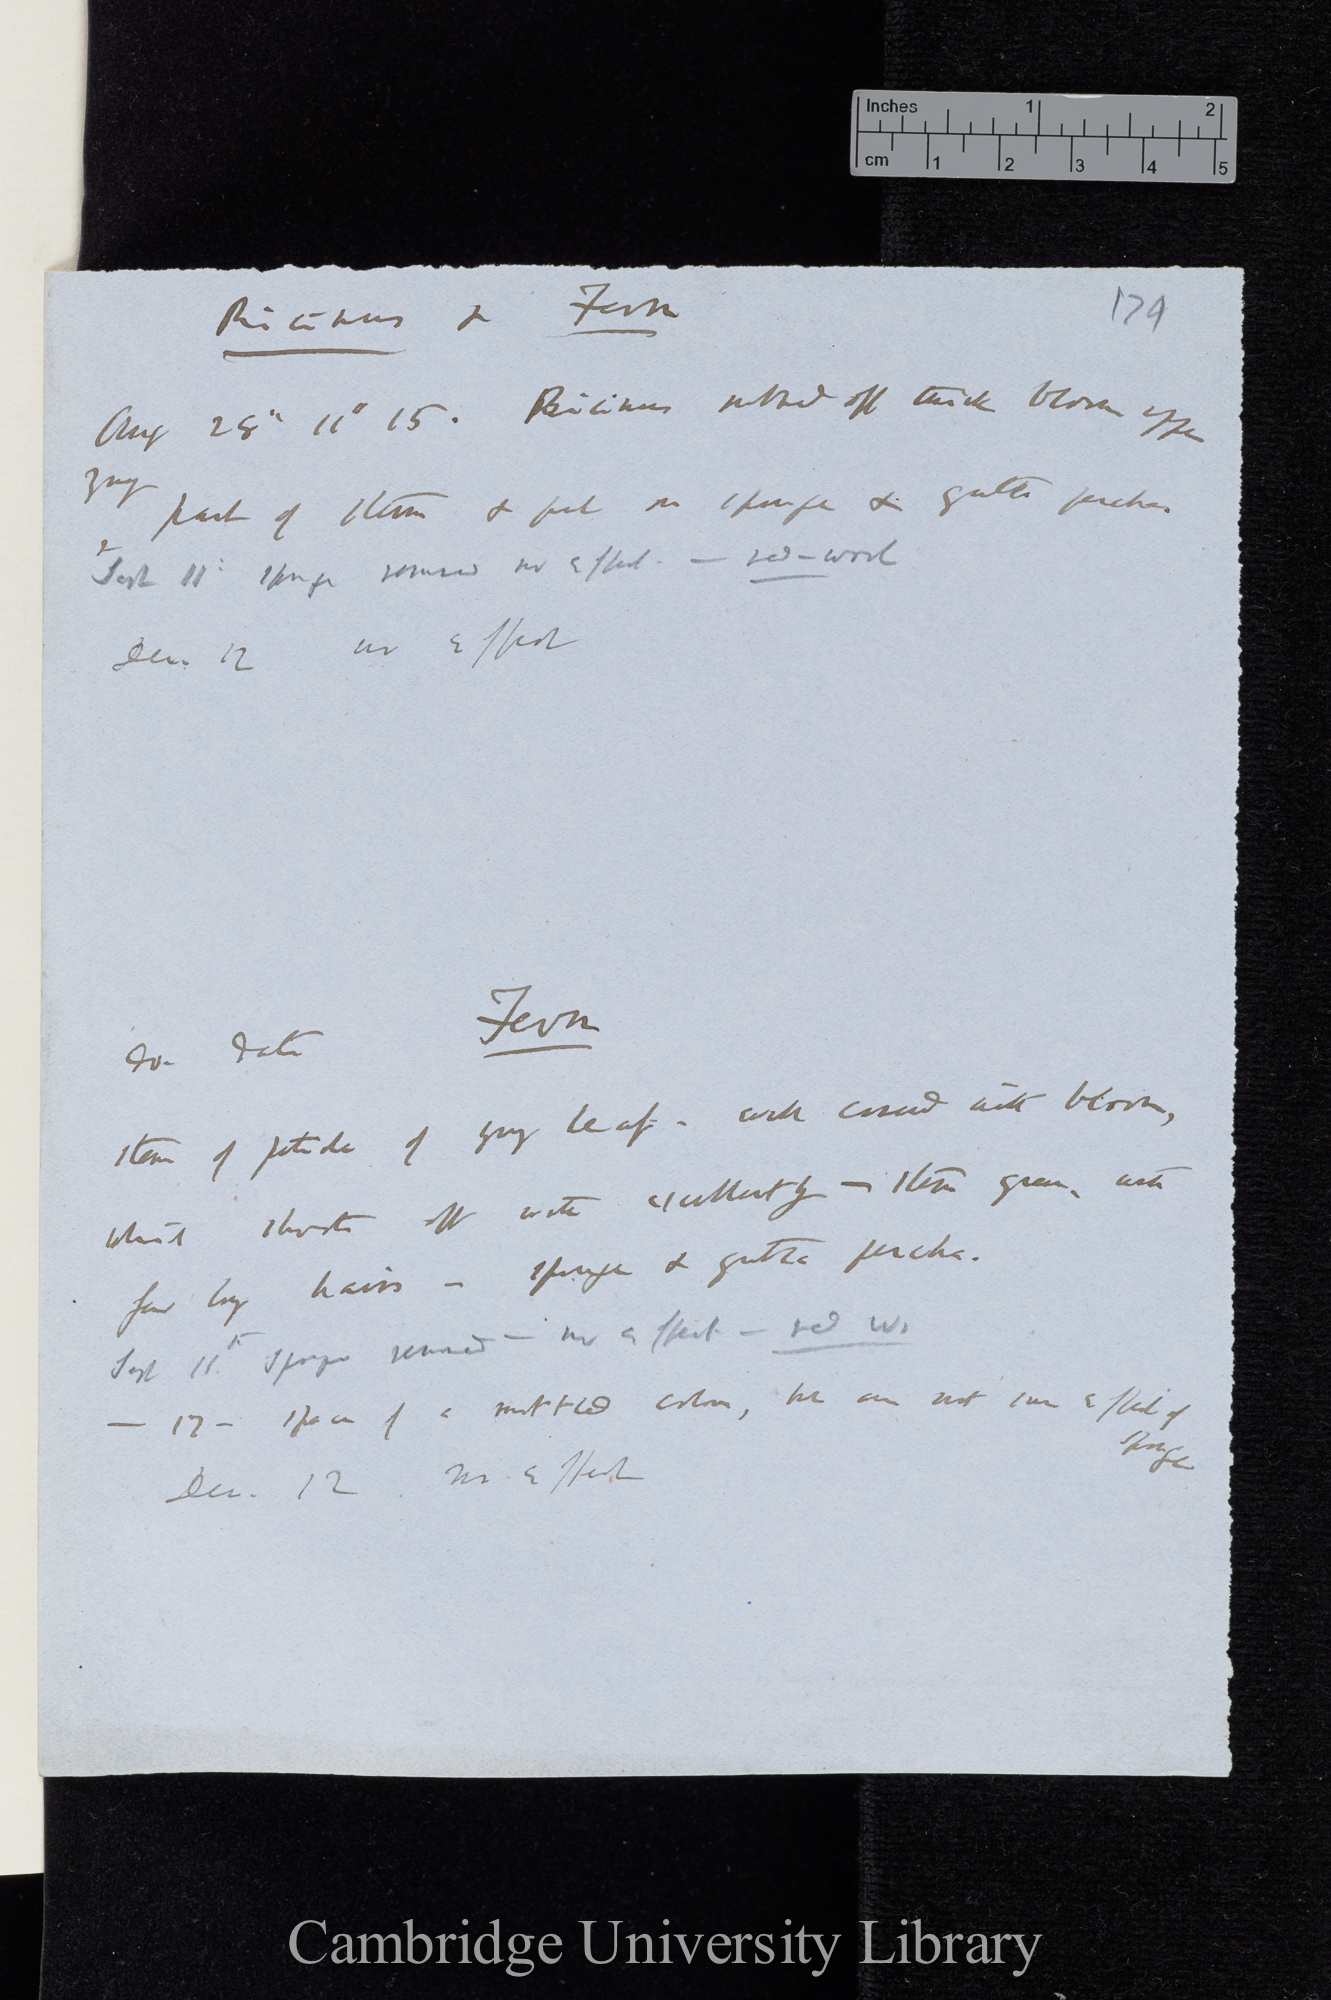 Inches 1 2
cm 1 2 3 4 5
Ricinus & Fern
179
Aug 28th 11° 15'. Ricinus rubbed off thick bloom upper
young part of stem & put on sponge & gutta percha.
Sept 11th sponge removed no effect. — red-wool
Dec. 12 no effect
Fern
do date
stem of petiole of young leaf - well covered with bloom,
which shoots off water excellently — stem green, with
few long hairs — sponge & gutta percha.
Sept 11th sponge removed — no effect — red wo
— 17 — space of a mottled colour, but am not sure effect of
sponge
Dec. 12 no effect
Cambridge University Library